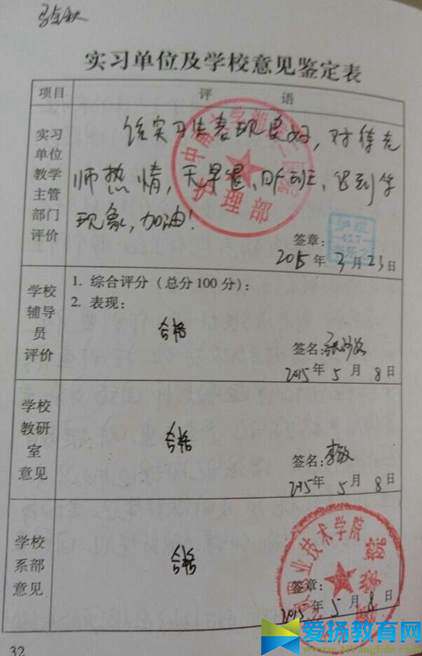 实习单位及学校意见鉴定表
项目 评语
实习单位教学主管部门评价
该实习生表现良好,对待老
师热情,无早退、旷班、迟到等
现象,加油!
护理部
签章:
2015年3月23日
学校辅导员评价
1. 综合评分(总分100分):
2. 表现:
合格
签名:
2015年5月8日
学校教研室意见
合格
签名:
2015年5月8日
学校系部意见
合格
业技术学院
签章:
2015年5月8日
32
爱扬教育网